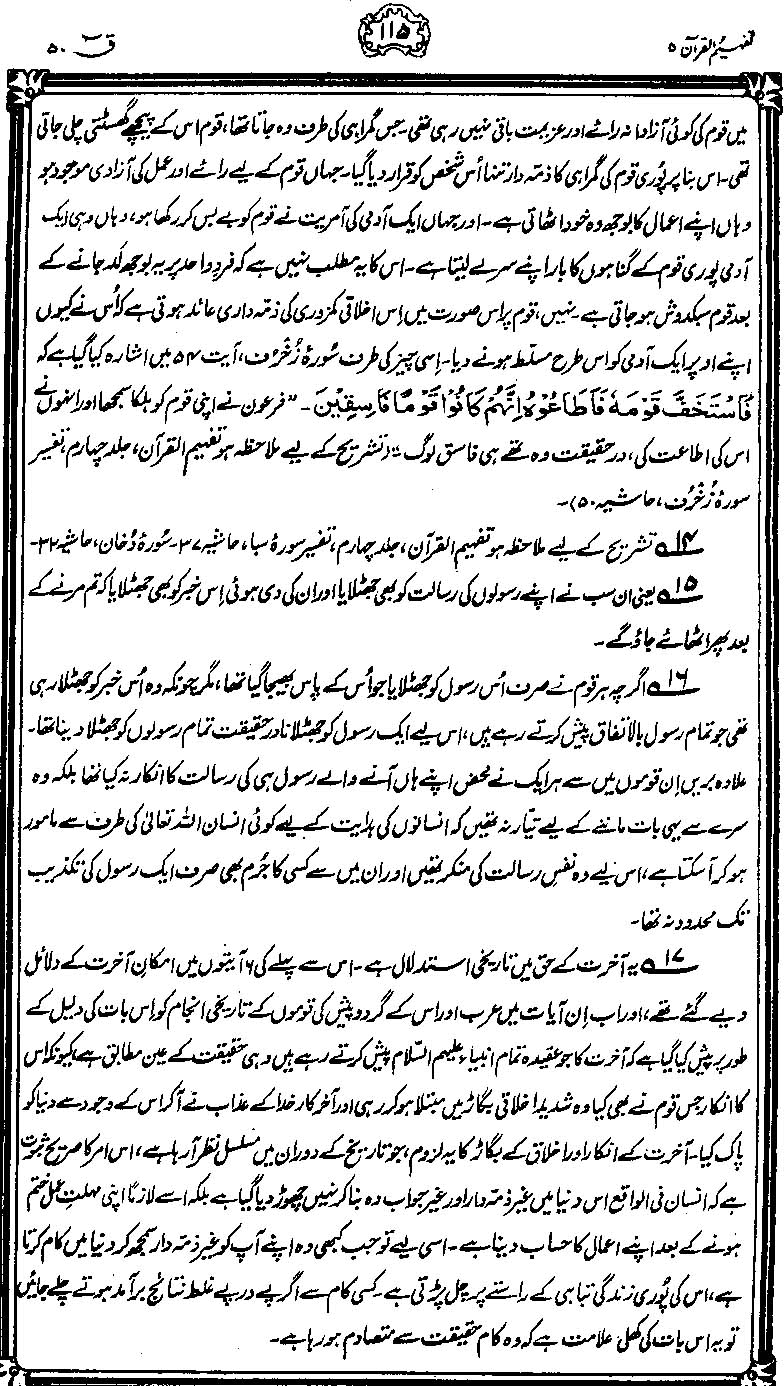 تفہیم القرآن ۵ ۱۱۵ قٓ ۵۰
میں قوم کی کوئی آزادانہ رائے اور عزیمت باقی نہیں رہی تھی۔ جس گمراہی کی طرف وہ جاتا تھا، قوم اس کے پیچھے گھسٹتی چلی جاتی
تھی۔ اس بنا پر پُوری قوم کی گمراہی کا ذمّہ دار تنہا اُس شخص کو قرار دیا گیا۔ جہاں قوم کے لیے رائے اور عمل کی آزادی موجود ہو
وہاں اپنے اعمال کا بوجھ وہ خود اٹھاتی ہے۔ اور جہاں ایک آدمی کی آمریت نے قوم کو بے بس کر رکھا ہو، وہاں وہی ایک
آدمی پوری قوم کے گناہوں کا بار اپنے سر لے لیتا ہے۔ اس کا یہ مطلب نہیں ہے کہ فردِ واحد پر یہ بوجھ لَد جانے کے
بعد قوم سبکدوش ہو جاتی ہے۔ نہیں، قوم پر اس صورت میں اِس اخلاقی کمزوری کی ذمّہ داری عائد ہوتی ہے کہ اُس نے کیوں
اپنے اوپر ایک آدمی کو اس طرح مسلط ہونے دیا۔ اِسی چیز کی طرف سُورۂ زُخْرُف، آیت ۵۴ میں اشارہ کیا گیا ہے کہ
فَاسْتَخَفَّ قَوْمَهٗ فَاَطَاعُوْهُ اِنَّهُمْ كَانُوْا قَوْمًا فَاسِقِيْنَ۔ ”فرعون نے اپنی قوم کو ہلکا سمجھا اور انہوں نے
اس کی اطاعت کی، درحقیقت وہ تھے ہی فاسق لوگ“ (تشریح کے لیے ملاحظہ ہو تفہیم القرآن، جلد چہارم، تفسیر
سورۂ زُخْرُف، حاشیہ ۵۰)۔
۱۴؎ تشریح کے لیے ملاحظہ ہو تفہیم القرآن، جلد چہارم، تفسیر سورۂ سبا، حاشیہ ۳۷۔ سُورۂ دُخان، حاشیہ ۳۲۔
۱۵؎ یعنی ان سب نے اپنے رسولوں کی رسالت کو بھی جھٹلایا اور ان کی دی ہوئی اِس خبر کو بھی جھٹلایا کہ تم مرنے کے
بعد پھر اٹھائے جاؤ گے۔
۱۶؎ اگرچہ ہر قوم نے صرف اُس رسول کو جھٹلایا جو اُس کے پاس بھیجا گیا تھا، مگر چونکہ وہ اُس خبر کو جھٹلا رہی
تھی جو تمام رسول بالاتفاق پیش کرتے رہے ہیں، اس لیے ایک رسول کو جھٹلانا درحقیقت تمام رسولوں کو جھٹلا دینا تھا۔
علاوہ بریں اِن قوموں میں سے ہر ایک نے محض اپنے ہاں آنے والے رسول ہی کی رسالت کا انکار نہ کیا تھا بلکہ وہ
سرے سے یہی بات ماننے کے لیے تیّار نہ تھیں کہ انسانوں کی ہدایت کے لیے کوئی انسان اللہ تعالیٰ کی طرف سے مامور
ہو کر آ سکتا ہے، اس لیے وہ نفسِ رسالت کی منکر تھیں اور ان میں سے کسی کا جُرم بھی صرف ایک رسول کی تکذیب
تک محدود نہ تھا۔
۱۷؎ یہ آخرت کے حق میں تاریخی استدلال ہے۔ اس سے پہلے کی ۶ آیتوں میں امکانِ آخرت کے دلائل
دیے گئے تھے، اور اب اِن آیات میں عرب اور اس کے گرد و پیش کی قوموں کے تاریخی انجام کو اِس بات کی دلیل کے
طور پر پیش کیا گیا ہے کہ آخرت کا جو عقیدہ تمام انبیاء علیہم السّلام پیش کرتے رہے ہیں وہی حقیقت کے عین مطابق ہے، کیونکہ اس
کا انکار جس قوم نے بھی کیا وہ شدید اخلاقی بگاڑ میں مبتلا ہو کر رہی اور آخر کار خدا کے عذاب نے آ کر اس کے وجود سے دنیا کو
پاک کیا۔ آخرت کے انکار اور اخلاق کے بگاڑ کا یہ لزوم، جو تاریخ کے دوران میں مسلسل نظر آ رہا ہے، اس امر کا صریح ثبوت
ہے کہ انسان فی الواقع اس دنیا میں غیر ذمّہ دار اور غیر جواب دہ بنا کر نہیں چھوڑ دیا گیا ہے بلکہ اسے لازمًا اپنی مہلتِ عمل ختم
ہونے کے بعد اپنے اعمال کا حساب دینا ہے۔ اسی لیے تو جب کبھی وہ اپنے آپ کو غیر ذمّہ دار سمجھ کر دنیا میں کام کرتا
ہے، اس کی پُوری زندگی تباہی کے راستے پر چل پڑتی ہے۔ کسی کام سے اگر پے در پے غلط نتائج برآمد ہوتے چلے جائیں
تو یہ اس بات کی کھلی علامت ہے کہ وہ کام حقیقت سے متصادم ہو رہا ہے۔